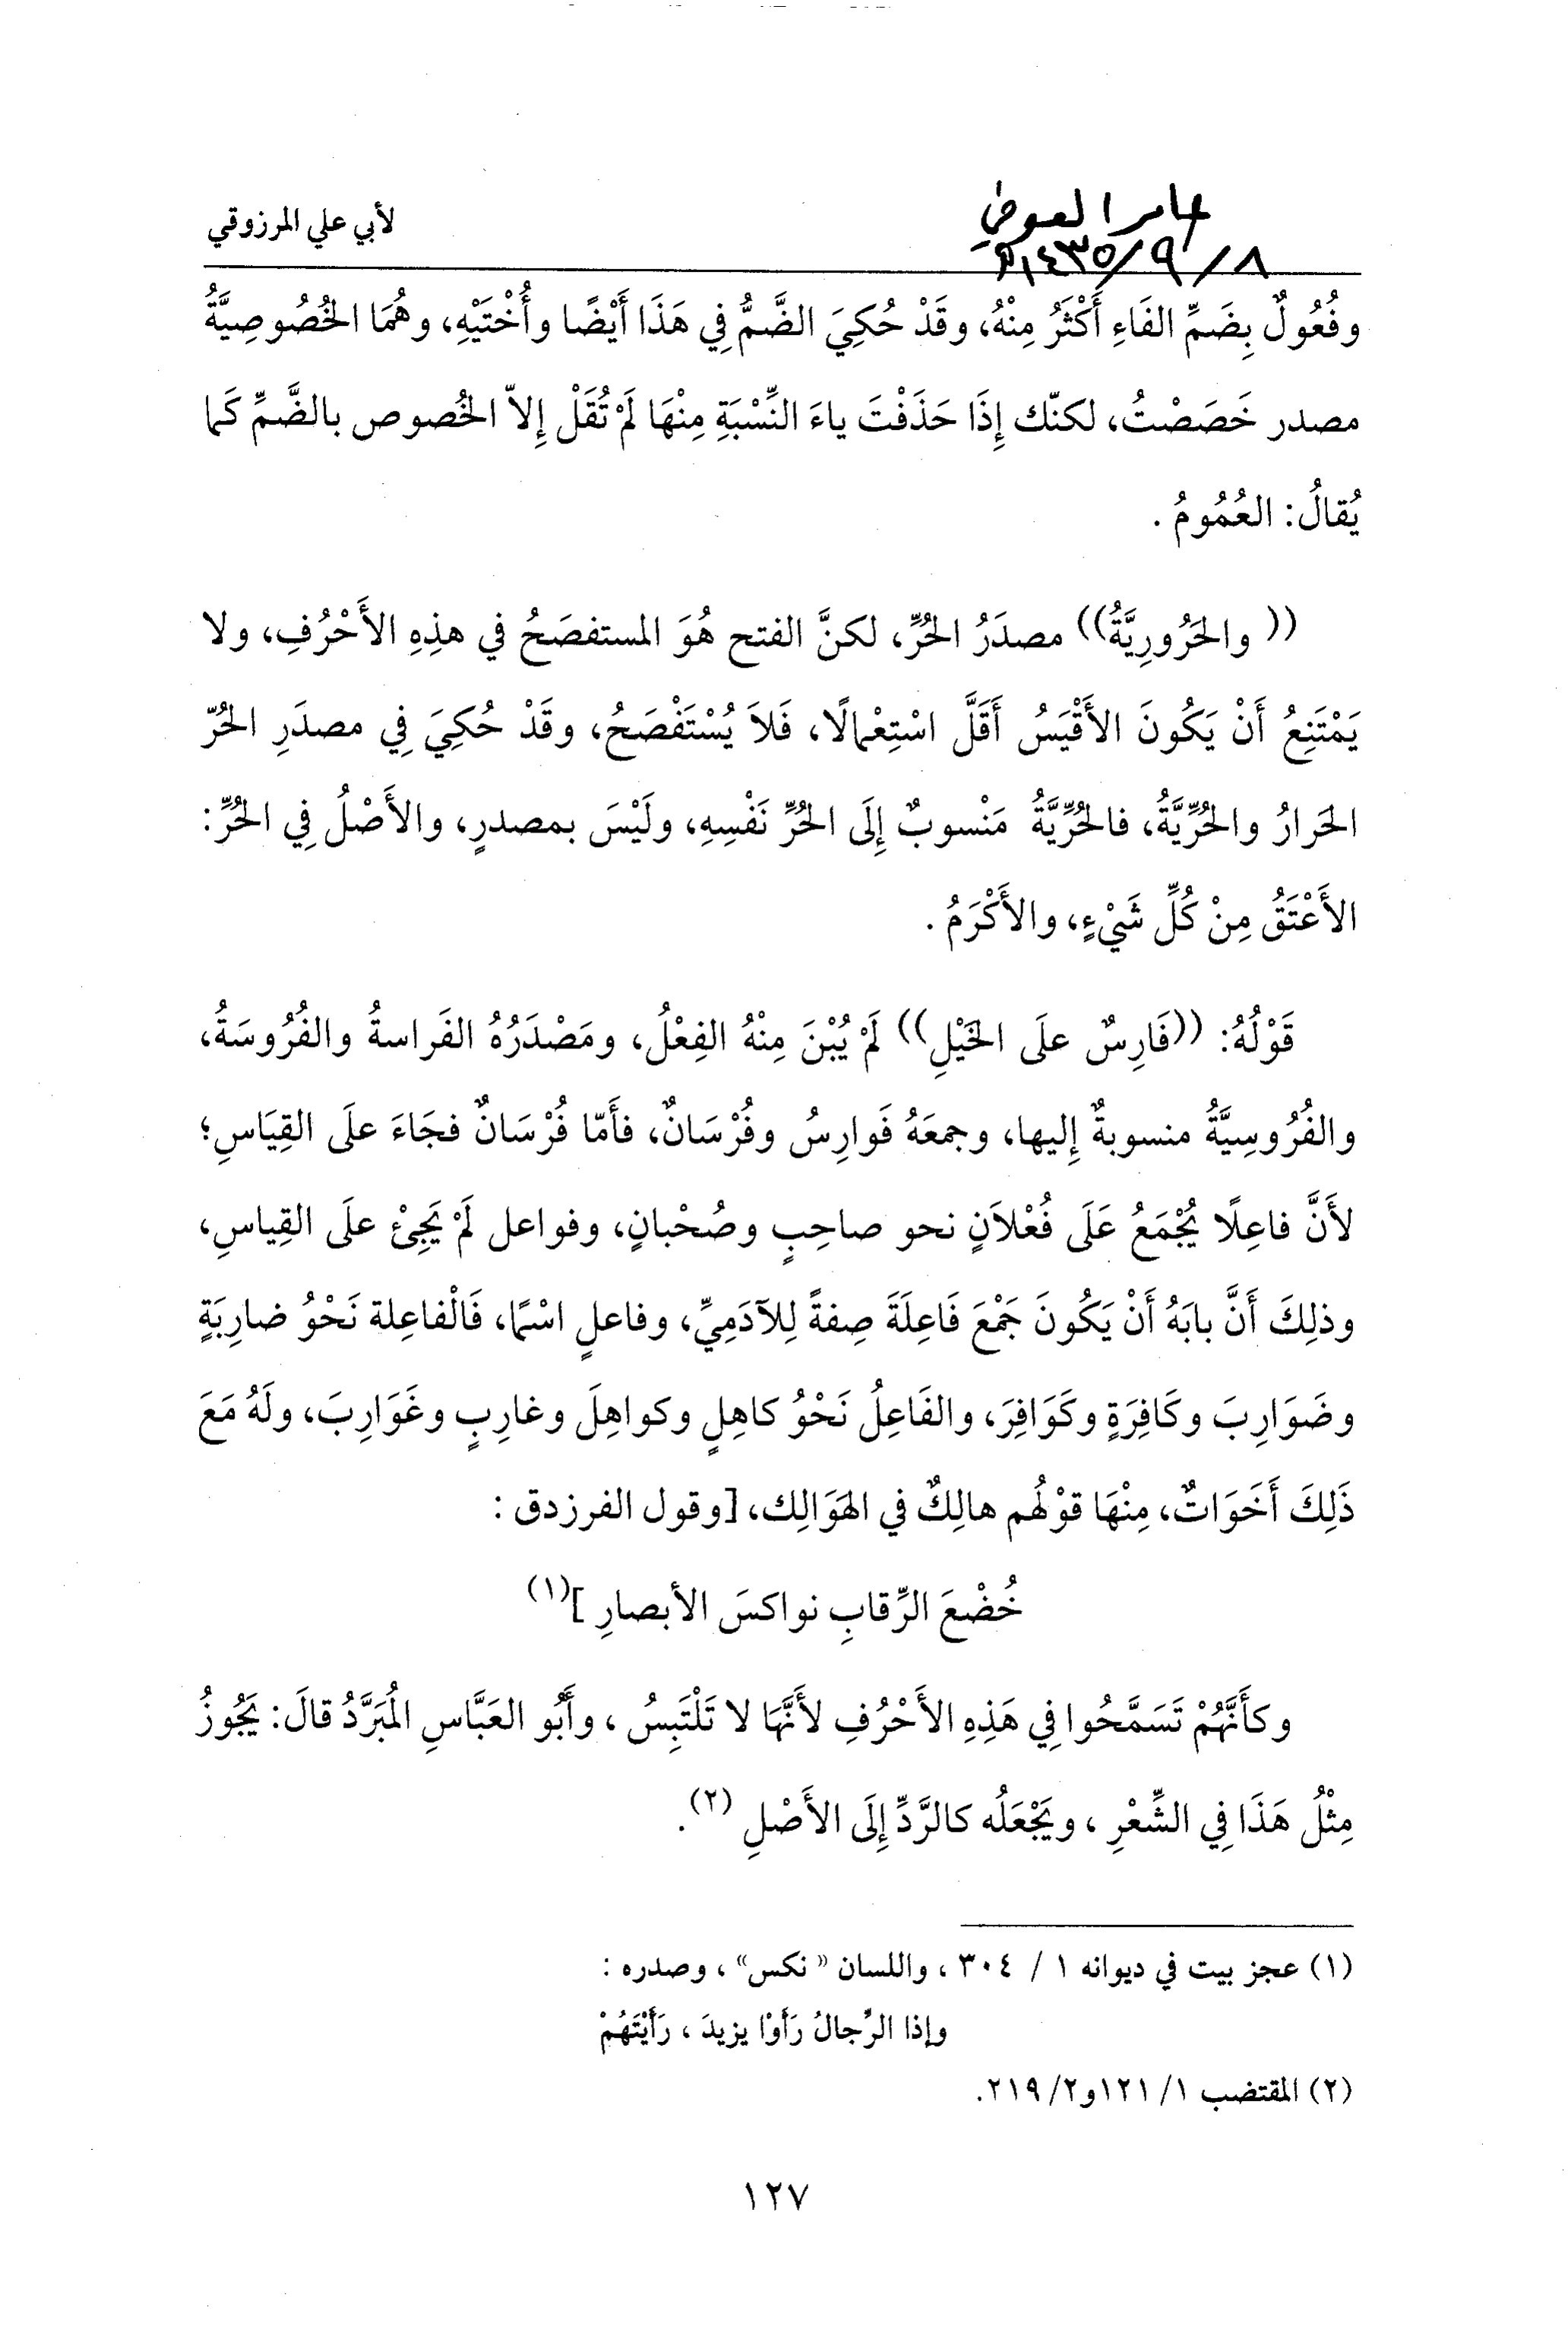 لأبي علي المرزوقي
عامر العوضي
٨/٩/١٤٣٥هـ
وفُعُولٌ بِضَمِّ الفَاءِ أَكْثَرُ مِنْهُ، وقَدْ حُكِيَ الضَّمُّ فِي هَذَا أَيْضًا وأُخْتَيْهِ، وهُمَا الخُصُوصِيَّةُ
مصدر خَصَصْتُ، لكنّك إِذَا حَذَفْتَ ياءَ النِّسْبَةِ مِنْهَا لَمْ تُقَلْ إِلاّ الخُصوص بالضَّمِّ كَما
يُقالُ: العُمُومُ .
(( والحَرُورِيَّةُ)) مصدَرُ الحُرِّ، لكنَّ الفتح هُوَ المستفصَحُ في هذِهِ الأَحْرُفِ، ولا
يَمْتَنِعُ أَنْ يَكُونَ الأَقْيَسُ أَقَلَّ اسْتِعْمالًا، فَلاَ يُسْتَفْصَحُ، وقَدْ حُكِيَ فِي مصدَرِ الحُرّ
الحَرارُ والحُرِّيَّةُ، فالحُرِّيَّةُ مَنْسوبٌ إِلَى الحُرِّ نَفْسِهِ، ولَيْسَ بمصدرٍ، والأَصْلُ فِي الحُرِّ:
الأَعْتَقُ مِنْ كُلِّ شَيْءٍ، والأَكْرَمُ .
قَوْلُهُ: ((فَارِسٌ علَى الخَيْلِ)) لَمْ يُبْنَ مِنْهُ الفِعْلُ، ومَصْدَرُهُ الفَراسةُ والفُرُوسَةُ،
والفُرُوسِيَّةُ منسوبةٌ إِليها، وجمعَهُ فَوارِسُ وفُرْسَانٌ، فأَمّا فُرْسَانٌ فجَاءَ علَى القِيَاسِ؛
لأَنَّ فاعِلًا يُجْمَعُ عَلَى فُعْلاَنٍ نحو صاحِبٍ وصُحْبانٍ، وفواعل لَمْ يَجِئْ علَى القِياسِ،
وذلِكَ أَنَّ بابَهُ أَنْ يَكُونَ جَمْعَ فَاعِلَةَ صِفةً لِلآدَمِيِّ، وفاعلٍ اسْمًا، فَالْفاعِلة نَحْوُ ضارِبَةٍ
وضَوَارِبَ وكَافِرَةٍ وكَوَافِرَ، والفَاعِلُ نَحْوُ كاهِلٍ وكواهِلَ وغارِبٍ وغَوَارِبَ، ولَهُ مَعَ
ذَلِكَ أَخَوَاتٌ، مِنْهَا قوْلُهُم هالِكٌ في الهَوَالِك، [وقول الفرزدق :
خُضْعَ الرِّقابِ نواكسَ الأبصارِ ](١)
وكأَنَّهُمْ تَسَمَّحُوا فِي هَذِهِ الأَحْرُفِ لأَنَّهَا لا تَلْتَبِسُ ، وأَبُو العَبَّاسِ المُبَرَّدُ قالَ: يَجُوزُ
مِثْلُ هَذَا فِي الشِّعْرِ ، ويَجْعَلُه كالرَّدِّ إِلَى الأَصْلِ (٢).
(١) عجز بيت في ديوانه ١ / ٣٠٤ ، واللسان «نكس» ، وصدره :
وإذا الرِّجالُ رَأَوْا يزيدَ ، رَأَيْتَهُمْ
(٢) المقتضب ١/ ١٢١و٢/ ٢١٩.
١٢٧